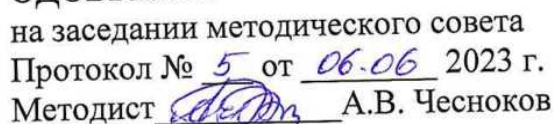 на заседании методического совета
Протокол № 5 от 06.06 2023 г.
Методист А.В. Чесноков